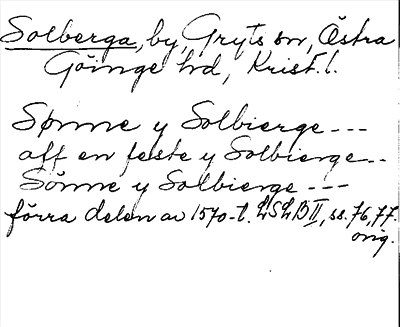 Solberga, by, Gryts sn, Östra
Göinge hd, Krist. l.
Sønne y Solbierge ---
aff en feste y Solbierge --
Sönne y Solbierge ---
förra delen av 1570-t. LSLB II, ss. 76, 77.
orig.